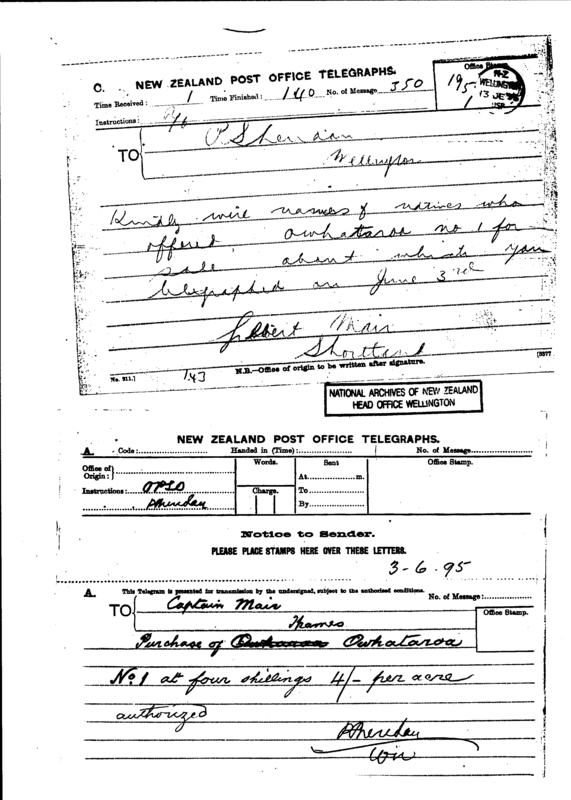 C. NEW ZEALAND POST OFFICE TELEGRAPHS.
Office Stamp.
Time Received: 1 Time Finished: 140 No. of Message 550
195
1
N.Z
WELLINGTON
13 JE 95
Instructions:
TO P. Sheridan
Wellington
Kindly wire names of natives who
offered Owhataroa no 1 for
sale about which you
telegraphed on June 3rd
Gilbert Mair
Shortland
N.B.—Office of origin to be written after signature.
No. 211.]
143
[5377
NATIONAL ARCHIVES OF NEW ZEALAND
HEAD OFFICE WELLINGTON
NEW ZEALAND POST OFFICE TELEGRAPHS.
A. Code: Handed in (Time): No. of Message
Office of Origin: Words. Sent Office Stamp.
At m.
Instructions: OPSO Charge. To
PSheridan By
Notice to Sender.
PLEASE PLACE STAMPS HERE OVER THESE LETTERS.
3-6.95
A. This Telegram is presented for transmission by the undersigned, subject to the authorised conditions. No. of Message:
TO Captain Mair Office Stamp.
Thames
Purchase of Owhataroa
No. 1 at four shillings 4/- per acre
authorized
PSheridan